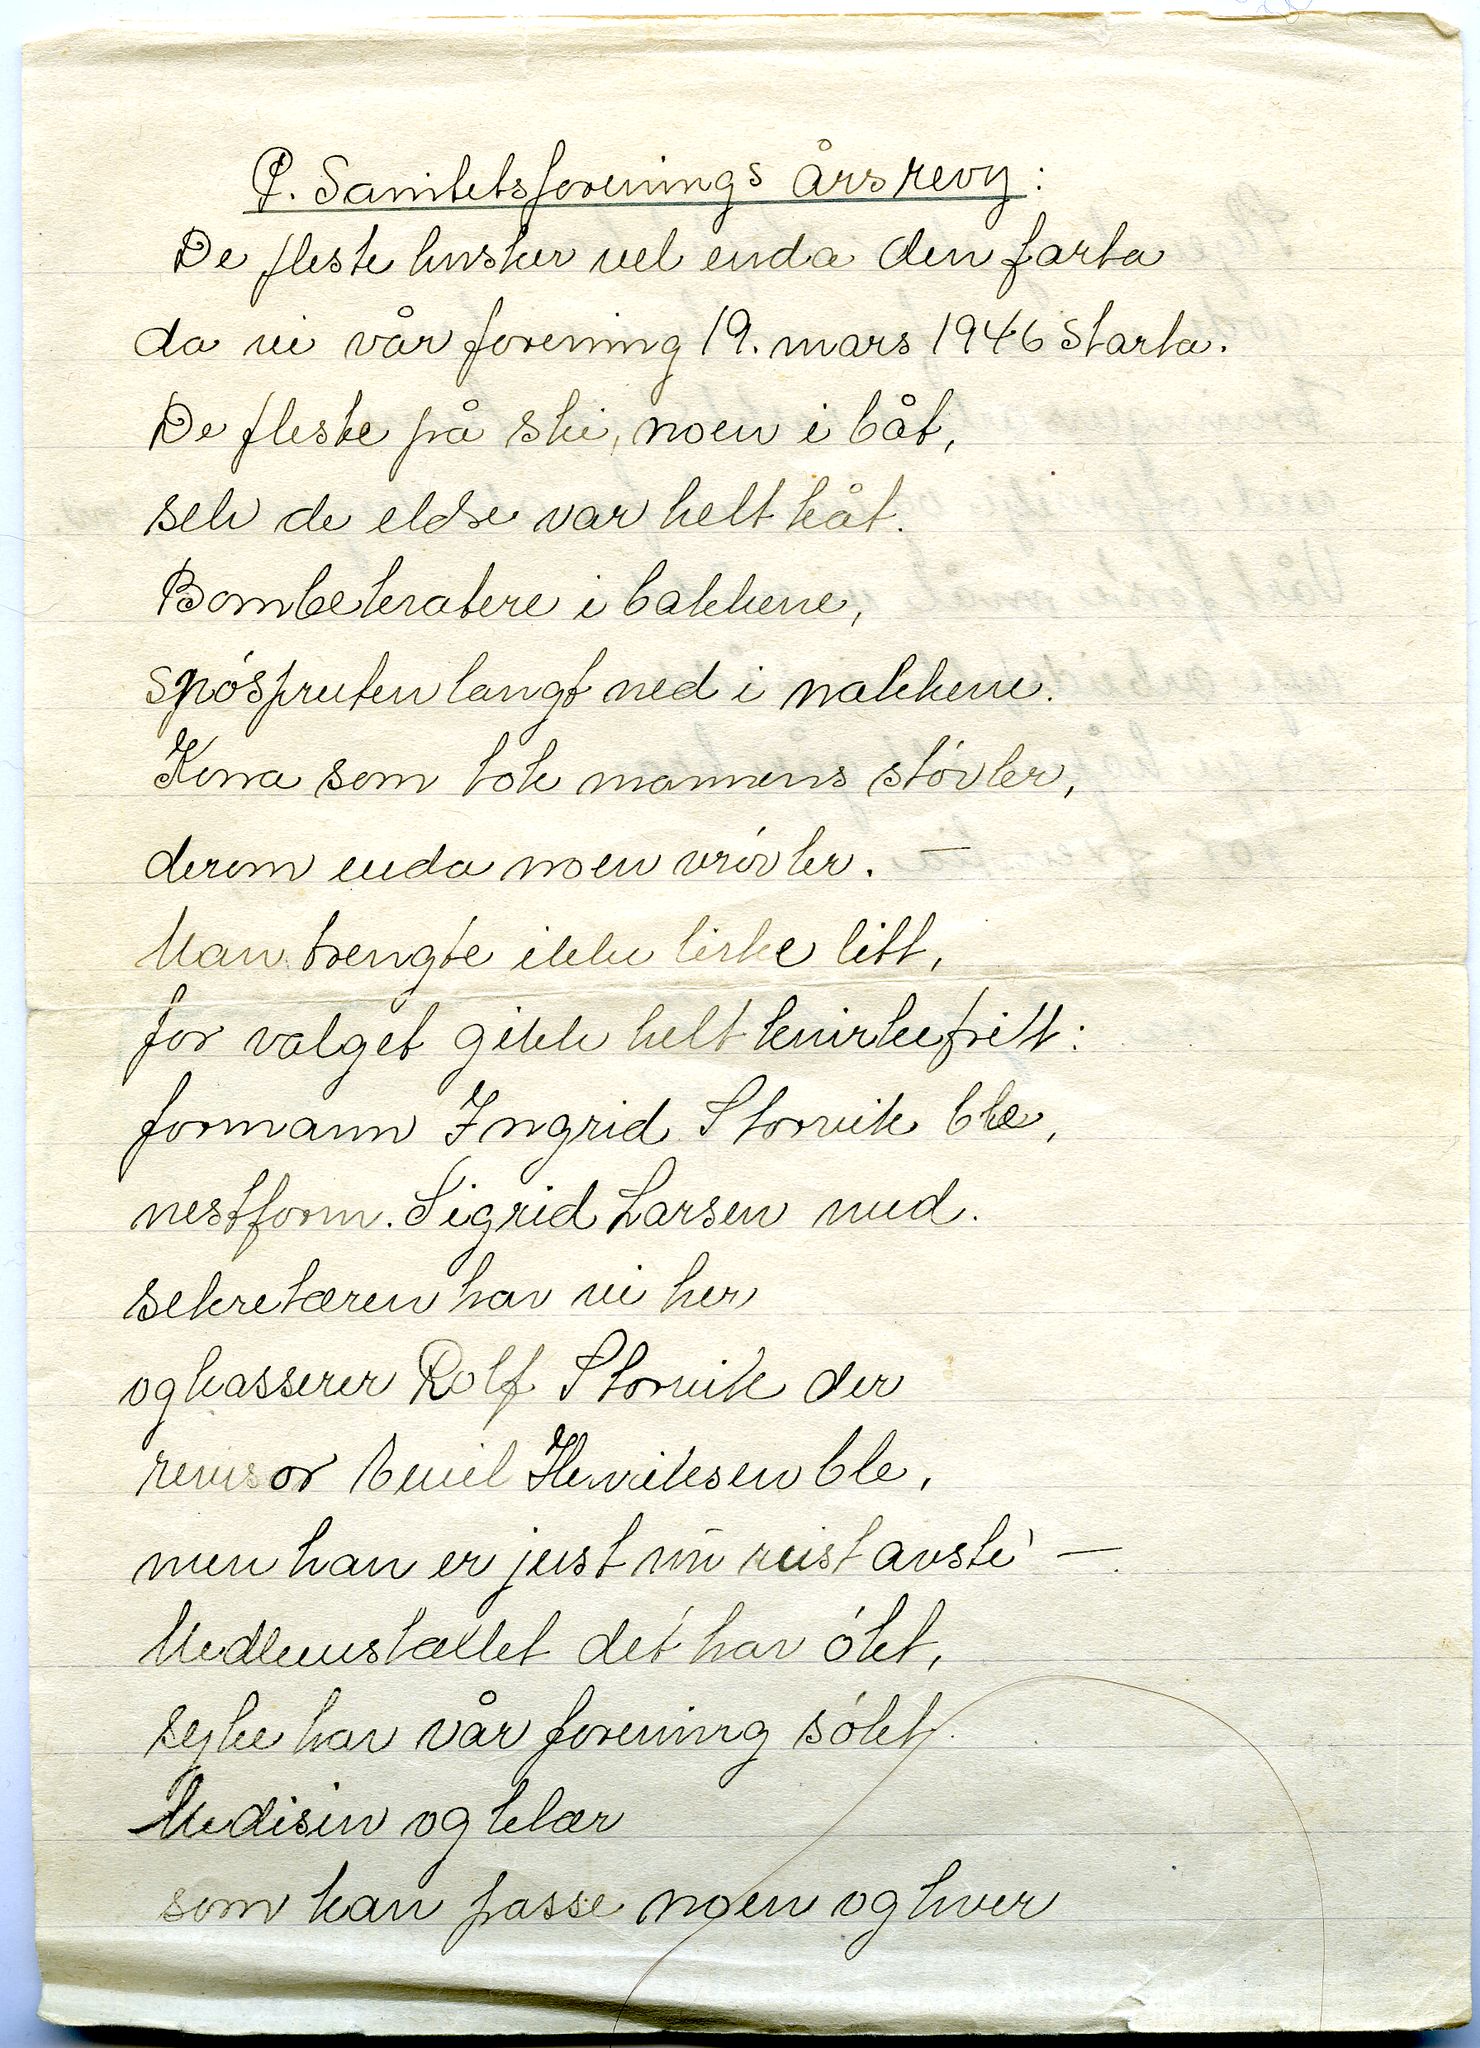 P. Sanitetsforenings årsrevy:
De fleste husker vel enda den farta
da vi vår forening 19. mars 1946 starta.
De fleste på ski, noen i båt,
selv de eldre var helt kåt.
Bombekratere i bakkene,
snøspruten langt ned i nakkene.
Kona som tok mannens støvler,
derom enda noen vrøvler. —
Man trengte ikke lirke litt,
for valget gikk helt knirkefritt:
formann Ingrid Storvik ble,
nestform. Sigrid Larsen med.
sekretæren har vi her
og kasserer Rolf Storvik der
revisor Emil Henriksen ble,
men han er just nu reist avste' —
Medlemstallet det har økt,
syke har vår forening søkt.
Medisin og klær
som kan passe noen og hver